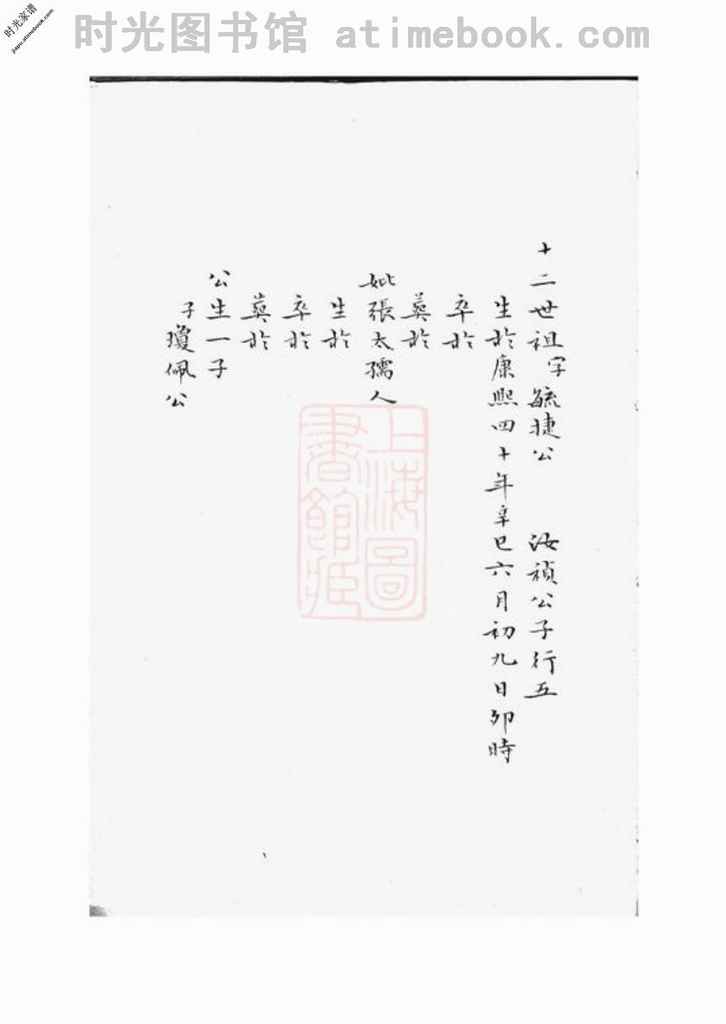 时光图书馆 atimebook.com
时光家谱
jiapu.atimebook.com
十二世祖字毓捷公 汝禎公子行五
生於康熙四十年辛巳六月初九日卯時
卒於
葬於
妣張太孺人
生於
卒於
葬於
公生一子
子瓊佩公
上海圖
書館藏